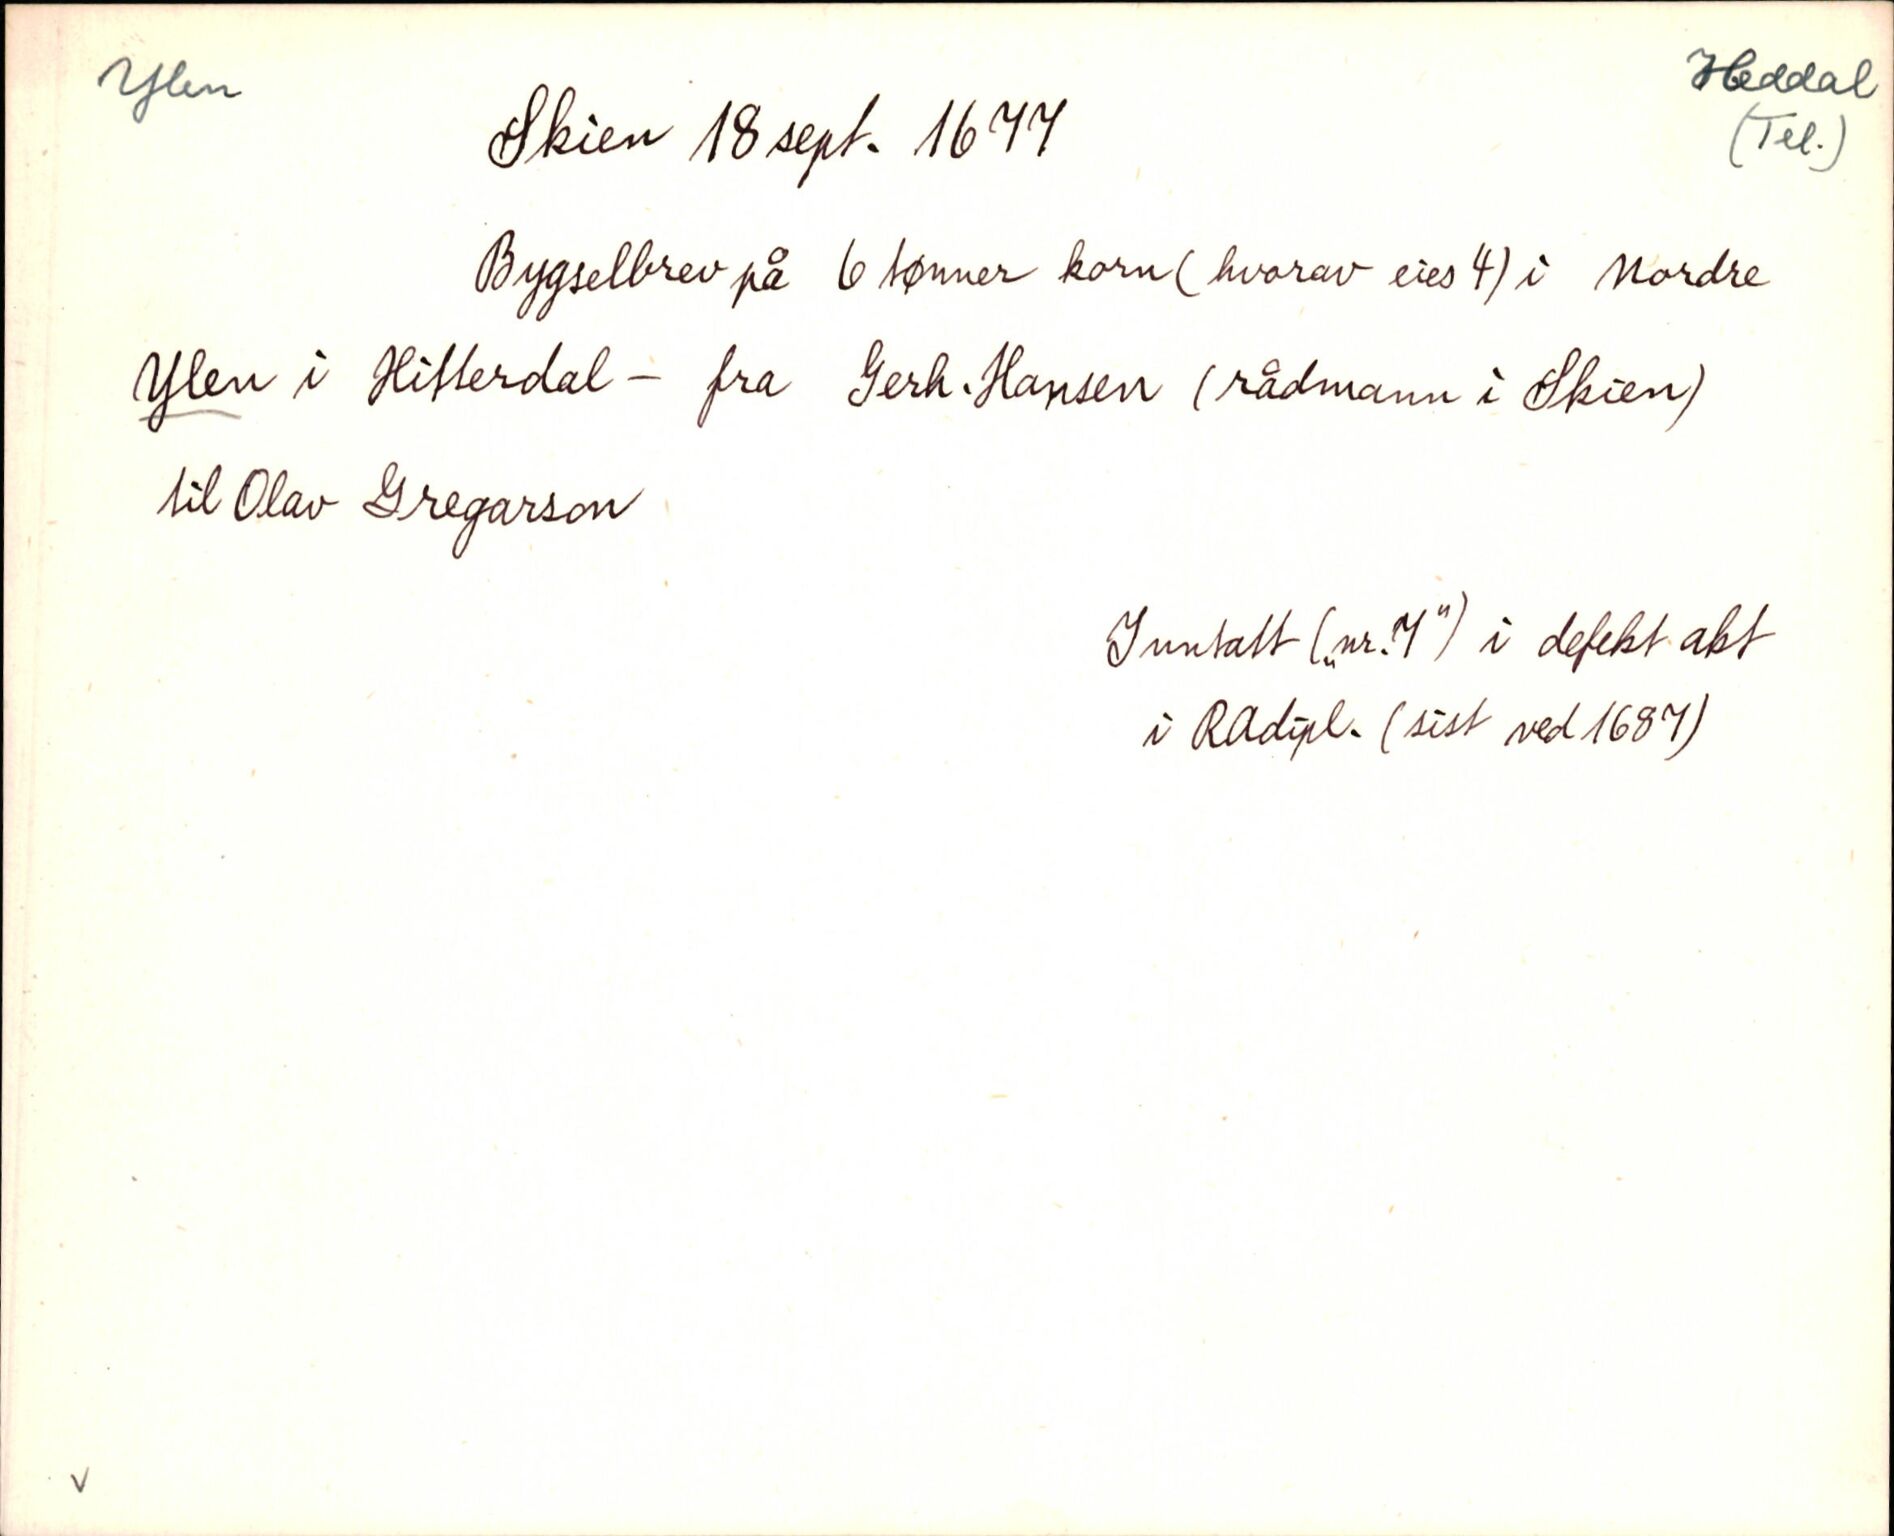 Ylen
Heddal
(Tel.)
Skien 18 sept. 1677
Bygselbrev på 6 tønner korn (hvorav eies 4) i Nordre
Ylen i Hitterdal - fra Gerh. Hansen (rådmann i Skien)
til Olav Gregarson
Inntatt („nr. 7") i defekt akt
i RAdipl. (sist ved 1687)
v